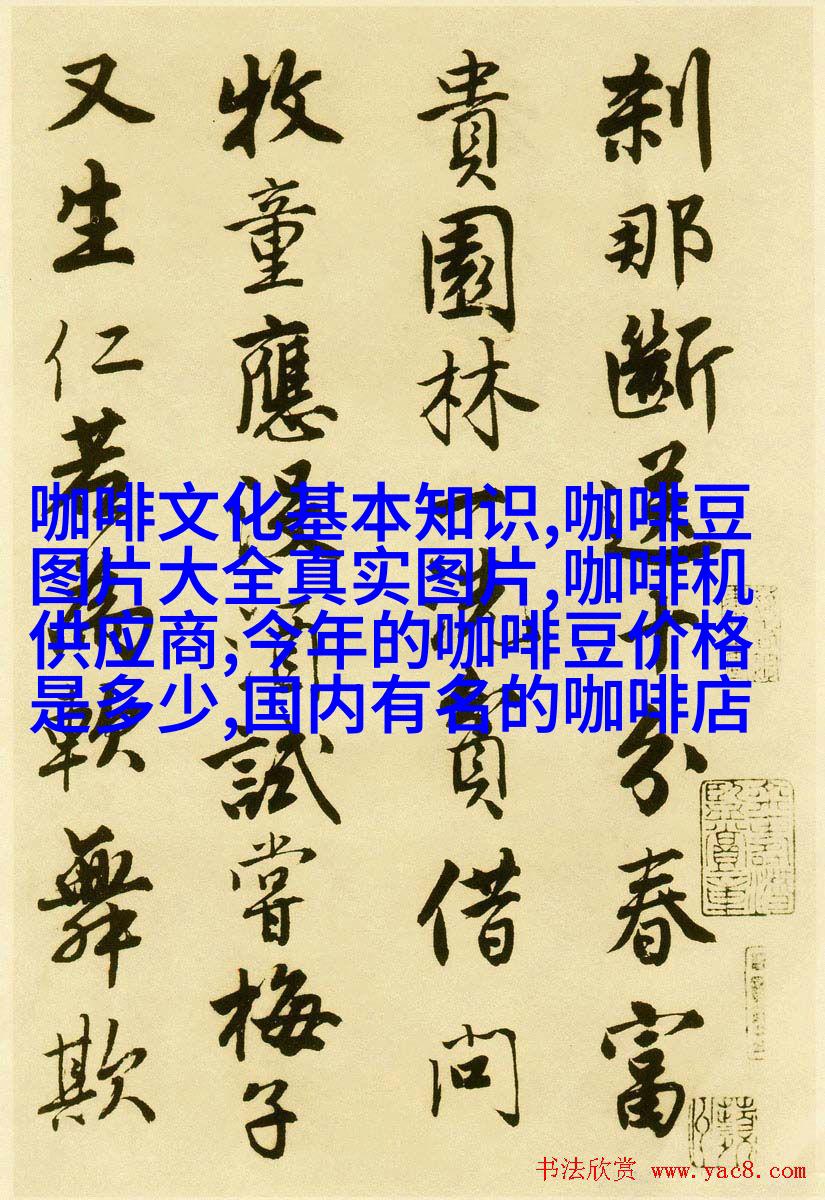 刹那斷送十分春富
貴園林一洗貧借問
牧童應沒酒試嘗梅子
又生仁若為軟舞欺
咖啡文化基本知识,咖啡豆
图片大全真实图片,咖啡机
供应商,今年的咖啡豆价格
是多少,国内有名的咖啡店
书法欣赏 www.yac8.com